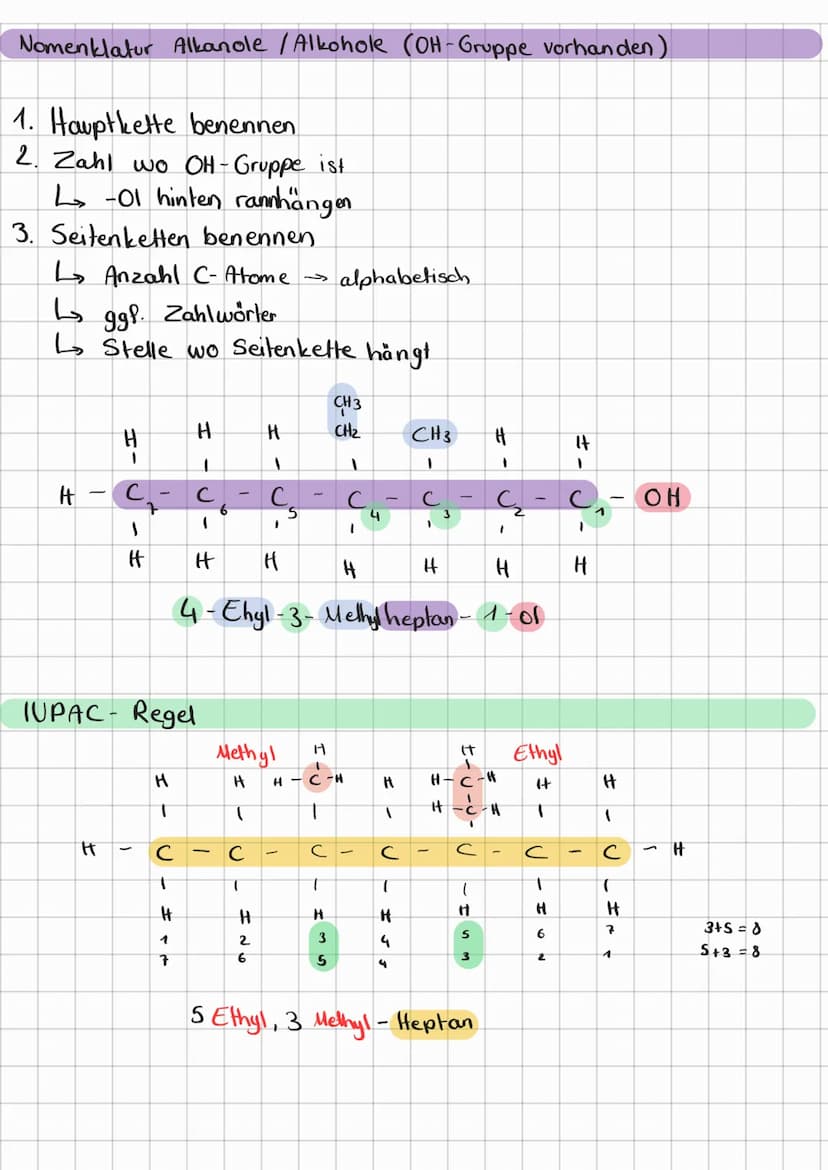 Nomenklatur Alkanole / Alkohole (OH-Gruppe vorhanden)
1. Hauptkette benennen
2. Zahl wo OH-Gruppe ist
↳ -Ol hinten rannhängen
3. Seitenketten benennen
↳ Anzahl C-Atome → alphabetisch
↳ ggf. Zahlwörter
↳ Stelle wo Seitenkette hängt
CH3
H H H CH2 CH3 H H
H - C7 - C6 - C5 - C4 - C3 - C2 - C1 - OH
H H H H H H H
4-Ehyl-3-Methylheptan-1-ol
IUPAC-Regel
Methyl H H Ethyl
H H H-C-H H H-C-H H H
H-C-H
H - C - C - C - C - C - C - C - H
H H H H H H H
1 2 3 4 5 6 7 3+5=8
7 6 5 4 3 2 1 5+3=8
5 Ethyl, 3 Methyl-Heptan